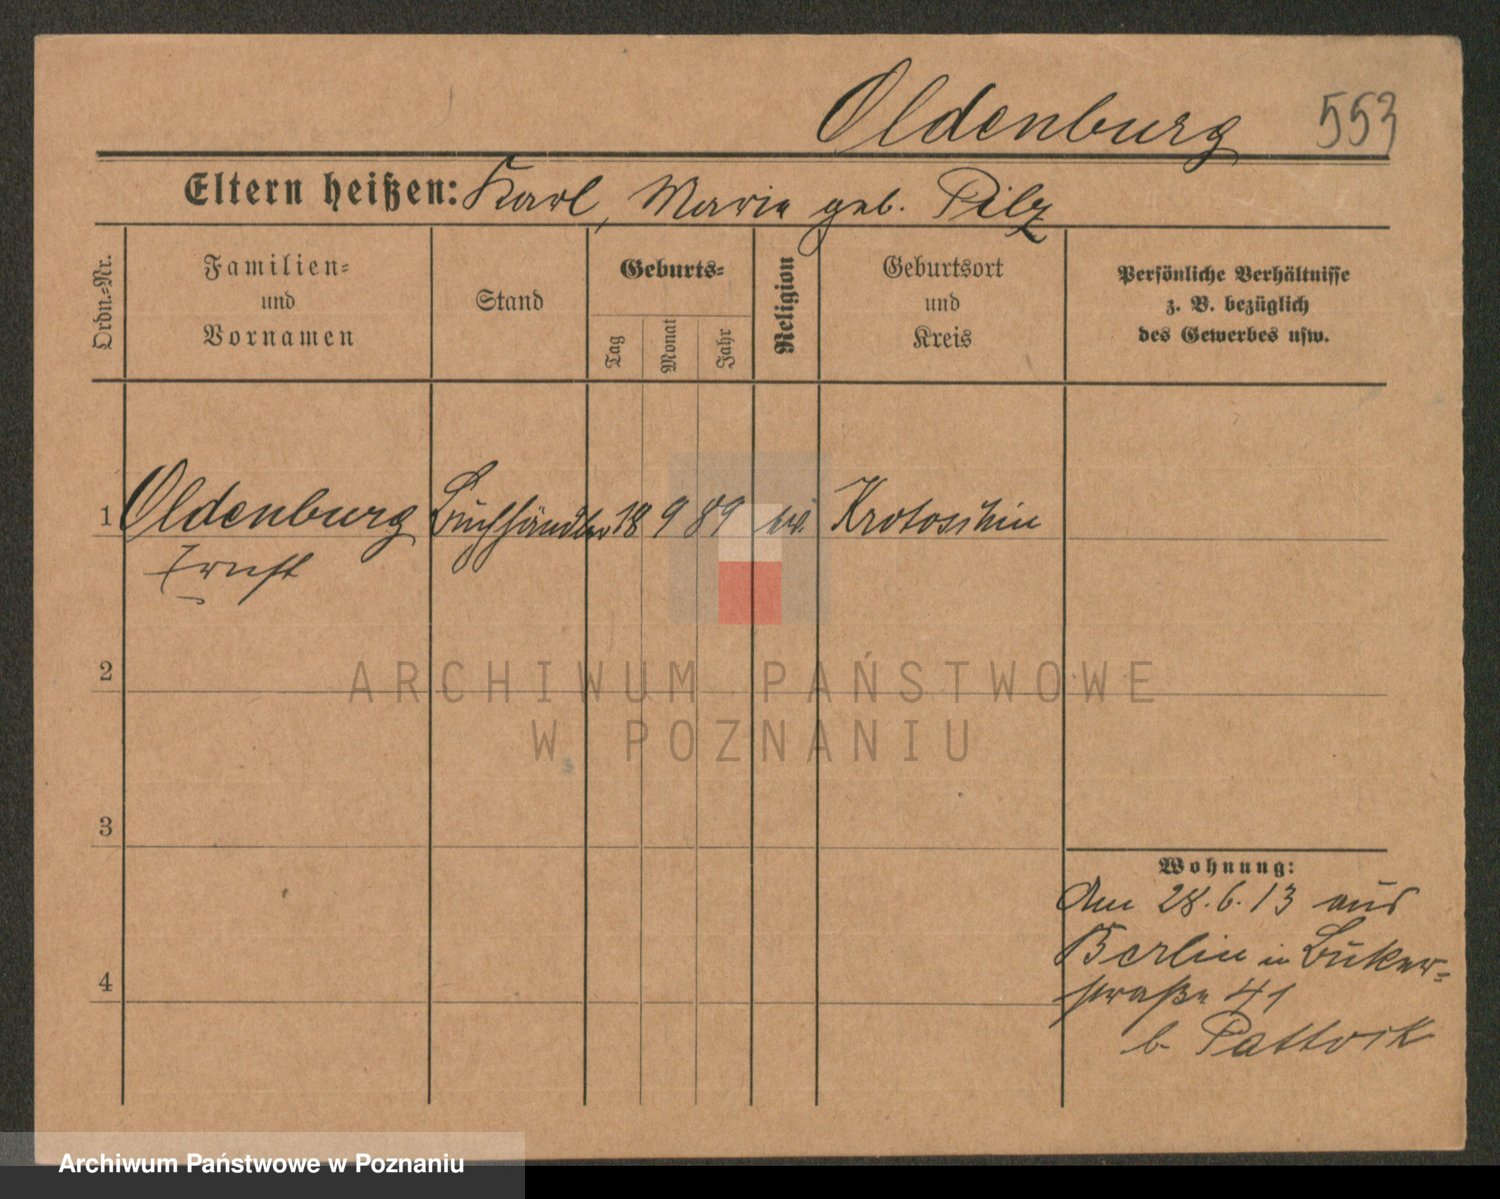 Oldenburg 553
Eltern heißen: Karl, Marie geb. Pilz
Ordn.-Nr.
Familien-
und
Vornamen
Stand
Geburts-
Tag
Monat
Jahr
Religion
Geburtsort
und
Kreis
Persönliche Verhältnisse
z. B. bezüglich
des Gewerbes usw.
1 Oldenburg Buchhändler 18 9 89 Krotoschin
Ernst
2
3
4
Wohnung:
Am 28.6.13 aus
Berlin in Buker-
straße 41
b. Pattock
ARCHIWUM PAŃSTWOWE
W POZNANIU
Archiwum Państwowe w Poznaniu